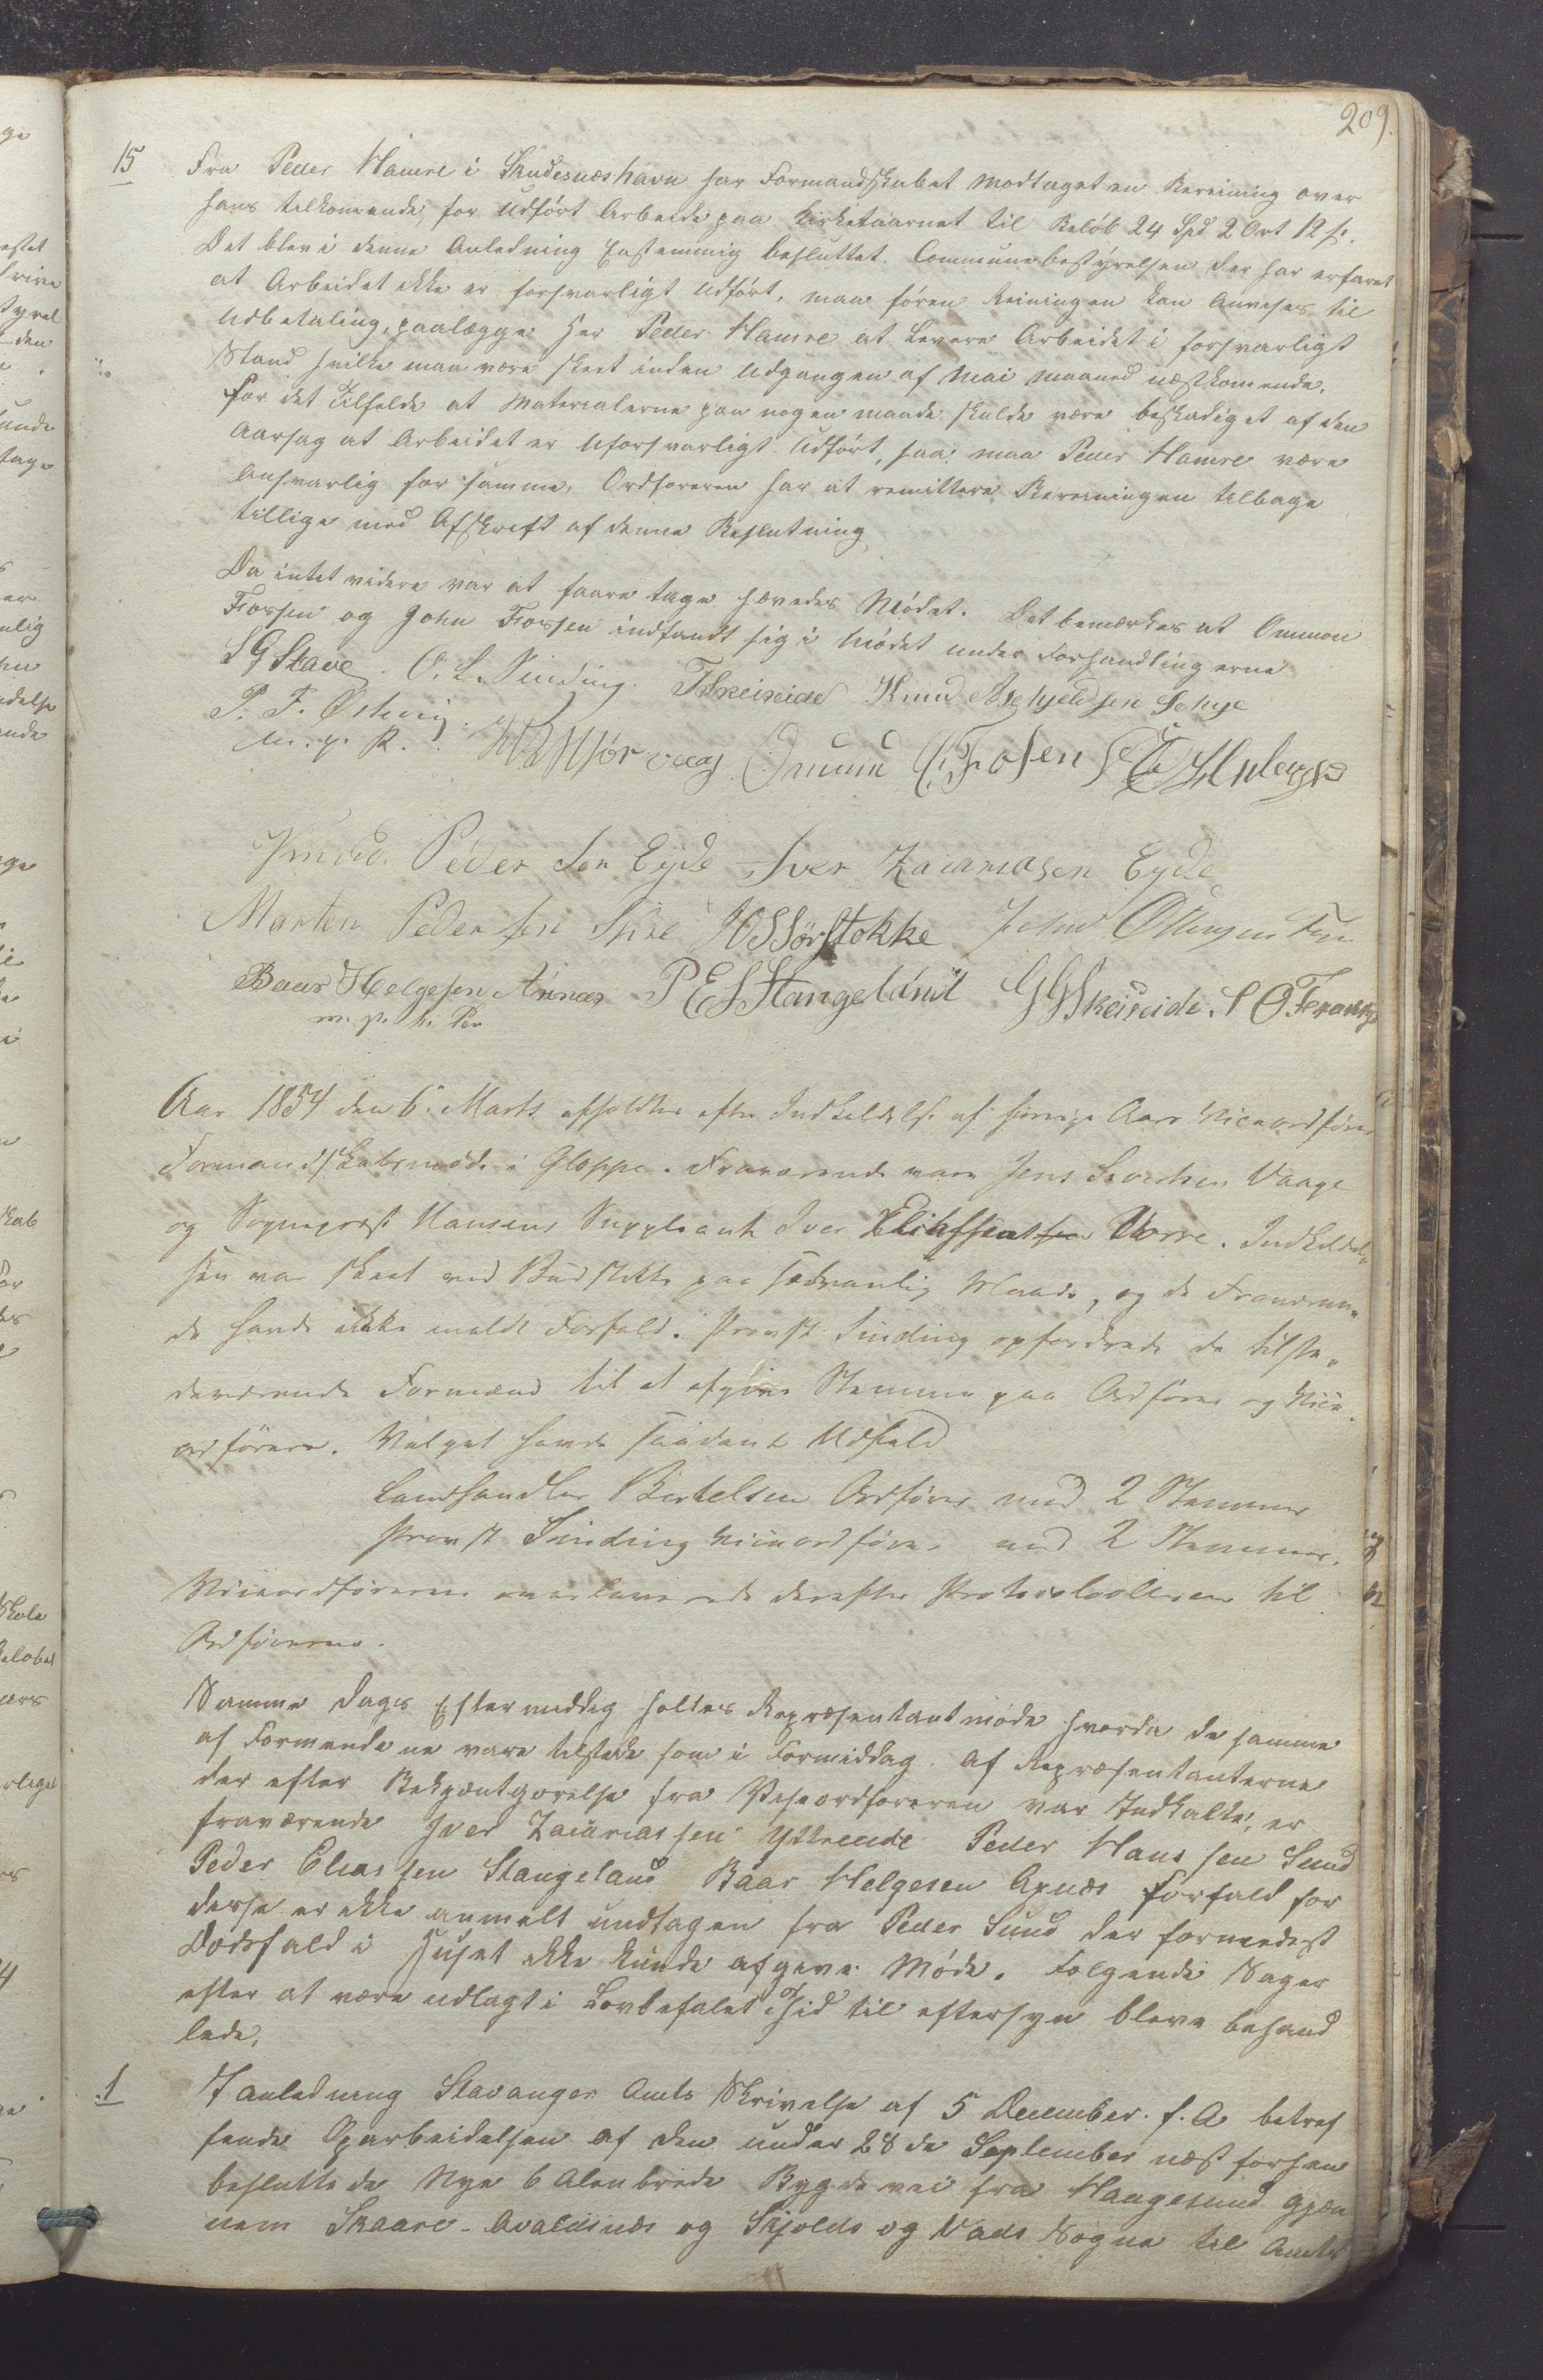 209.
15 Fra Peder Hamre i Skudesnæshavn har Formandskabet modtaget en Rereining over
hans telkomende, for udført Arbeide paa Kirketaarnet til Beløb 24 Spd 2 Ort 12 s.
Det blev i denne Anledning Enstemmig besluttet. Communebestyrelsen der har erfaret
at Arbeidet ikke er forsvarligt udført, maa føren Reiningen kan Anvises til
Udbetaling, paalægge Her Peder Hamre at Levere Arbeidet i forsvarligt
Stand hvilke maa være skeet inden Udgangen af Mai maaned næstkomende.
for det Tilfelde at Materialerne paa nogen maade skulde være beskadiget af den
Aarsag at Arbeidet er Uforsvarligt Udført, saa maa Peder Hamre være
Ansvarlig for samme, Ordføreren har at remittere Rereiningen telbage
tillige med Afskreft af denne Beslutning
Da intet videre var at faare tage hævedes Mødet. Det bemærkes at Ommon
Fosen og John Fossen indfandt sig i Mødet under Forhandlingerne
S G Stave O. L. Sinding. T Skeiseide Knud Schye
P. F. Østevig
m. p. P. Ommund Fosen
Knud Peder Sen Eyde Iver Zacariasen Eyde
Marten Peder sen Sørstokke John
Baar Helgesen Axnæs P E S Stangeland G G Skeiseide.
m. p. Pen
Aar 1854 den 6. Marts afholdtes efter Indkaldelse af forrige Aars Viceordfører
Formandskabsmøde i Gloppe. Fraværende vare Jens Sivertsen Vaage
og Sogneprest Hansens Suppleant Iver Eliassen Vorre. Indkaldel-
sen var skeet ved Budstikke paa sædvanlig Maade, og de Fraværen-
de havde ikke meldt Forfald. Provst Sinding opfordrede de tilste-
deværende Formænd til at afgive Stemme paa Ordfører og Vice-
ordfører. Valget havde saadant Udfald
Landhandler Bertelsen Ordfører med 2 Stemmer
Provst Sinding Viceordfører med 2 Stemmer.
Viceordføreren overleverede derefter Protokollen til
Ordføreren.
Samme Dags Eftermeddag holtes Repræsentantmøde hvorda de samme
af Formendene vare tilstede som i Formiddag. Af Repræsentanterne
der efter Bekjentgørelse fra Viseordføreren var Indkalte, er
fraværende Iver Zacariassen Yttreeide Peder Hans sen Sund
Peder Elias sen Stangeland Baar Helgesen Axnæs forfald for
desse er ikke anmelt undtagen fra Peder Sund der formedest
Dødsfald i Huset ikke kunde afgive Møde. Følgende Sager
efter at være udlagt i Lovbefalet Tid til eftersyn bleve behand
lede,
1 I anledneng Stavanger Amts Skrivelse af 5 December f. A betref
fende Oparbeidelsen af den under 28de September næst forhen
besluttede Nye 6 Alen brede Bygdevei fra Haugesund gjen
nem Skaare - Avaldsnæs og Skjolds og Vads Sogne tel Amts